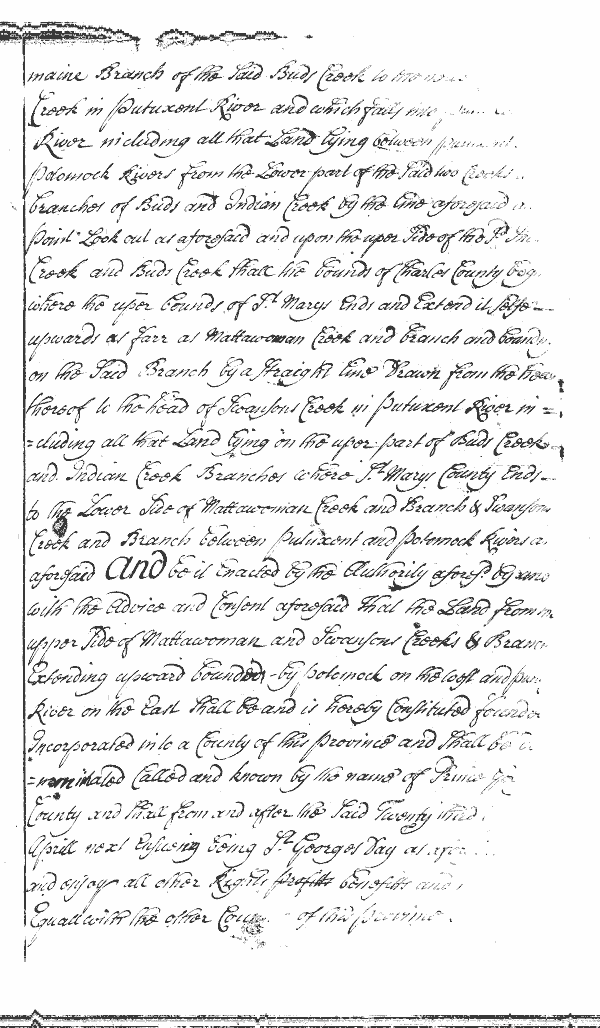 maine Branch of the Said Buds Creek to the
Creek in Putuxent River and which falls into
River including all that Land lying between
Potomock Rivers from the Lower part of the Said two Creeks
branches of Buds and Indian Creek by the Line aforesaid
point Look out as aforesaid and upon the uper Side of the Sd In
Creek and Buds Creek Shall the bounds of Charles County beg
where the uper bounds of St Marys Ends and Extend it Selfe
upwards as farr as Mattawoman Creek and branch and bound
on the Said Branch by a Straight Line Drawn from the head
thereof to the head of Swansons Creek in Putuxent River in =
=cluding all that Land lying on the uper part of Buds Creek
and Indian Creek Branches where St Marys County Ends
to the Lower Side of Mattawoman Creek and Branch & Swansons
Creek and Branch between Putuxent and Potomock Rivers as
aforesaid And be it Enacted by the Authority aforesd by and
with the Advice and Consent aforesaid that the Land from
upper Side of Mattawoman and Swansons Creeks & Branc
Extending upward bounded by Potomock on the West and Pu
River on the East Shall be and is hereby Constituted founde
Incorporated into a County of this Province and Shall be
=nominated Called and known by the name of Prince
County and Shall from and after the Said Twenty third
Aprill next Ensueing being St Georges Day as afor
and enjoy all other Rights profitts benefitts and
Equall with the other Coun of this Province